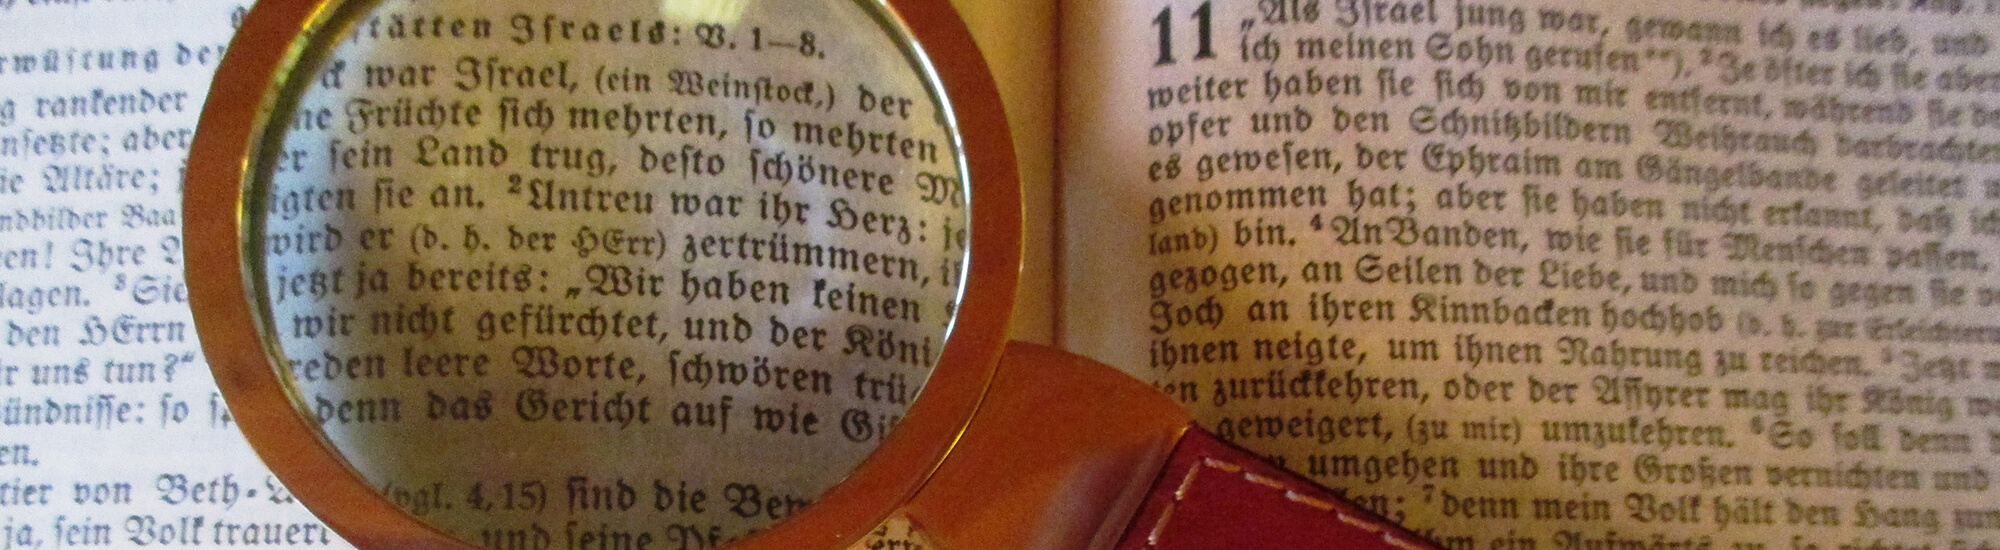 rwüstung der
g rankender
nsetzte; aber
ie Altäre;
ndbilder Baa
en! Ihre
lagen. ³Sie
den HErrn
r uns tun?“
ündnisse: so
en.
tier von Beth-
ja, sein Volk trauert
stätten Israels: V. 1—8.
ck war Israel, (ein Weinstock,) der
ne Früchte sich mehrten, so mehrten
er sein Land trug, desto schönere M
igten sie an. ²Untreu war ihr Herz: je
wird er (d. h. der HErr) zertrümmern,
jetzt ja bereits: „Wir haben keinen
wir nicht gefürchtet, und der Köni
reden leere Worte, schwören trü
denn das Gericht auf wie Gif
(vgl. 4, 15) sind die Bew
und seine Pf
11 „Als Israel jung war, gewann ich es lieb, und
ich meinen Sohn gerufen**). ²Je öfter ich sie aber
weiter haben sie sich von mir entfernt, während sie
opfer und den Schnitzbildern Weihrauch darbrachten
es gewesen, der Ephraim am Gängelbande geleitet
genommen hat; aber sie haben nicht erkannt, daß ich
land) bin. ⁴An Banden, wie sie für Menschen passen,
gezogen, an Seilen der Liebe, und mich so gegen sie
Joch an ihren Kinnbacken hochhob (d. h. zur
ihnen neigte, um ihnen Nahrung zu reichen. ⁵Jetzt
en zurückkehren, oder der Assyrer mag ihr König
geweigert, (zu mir) umzukehren. ⁶So soll denn
umgehen und ihre Großen vernichten und
en; ⁷denn mein Volk hält den Hang
ein Aufwärts